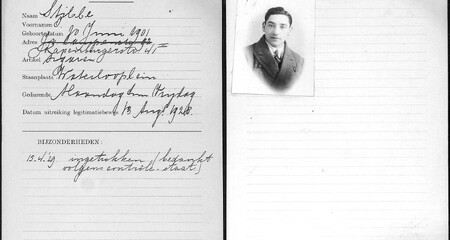 Naam Stjlebe
Voornamen
Geboortedatum 20 Juni 1901
Adres
Rapenburgerstr 41 III
Artikel Sigaren
Staanplaats Waterlooplein
Gedurende Maandag t/m Vrijdag
Datum uitreiking legitimatiebewijs 13 Augs 1928.
BIJZONDERHEDEN:
15.4.'29. ingetrokken (bedankt
volgens contrôle-staat)